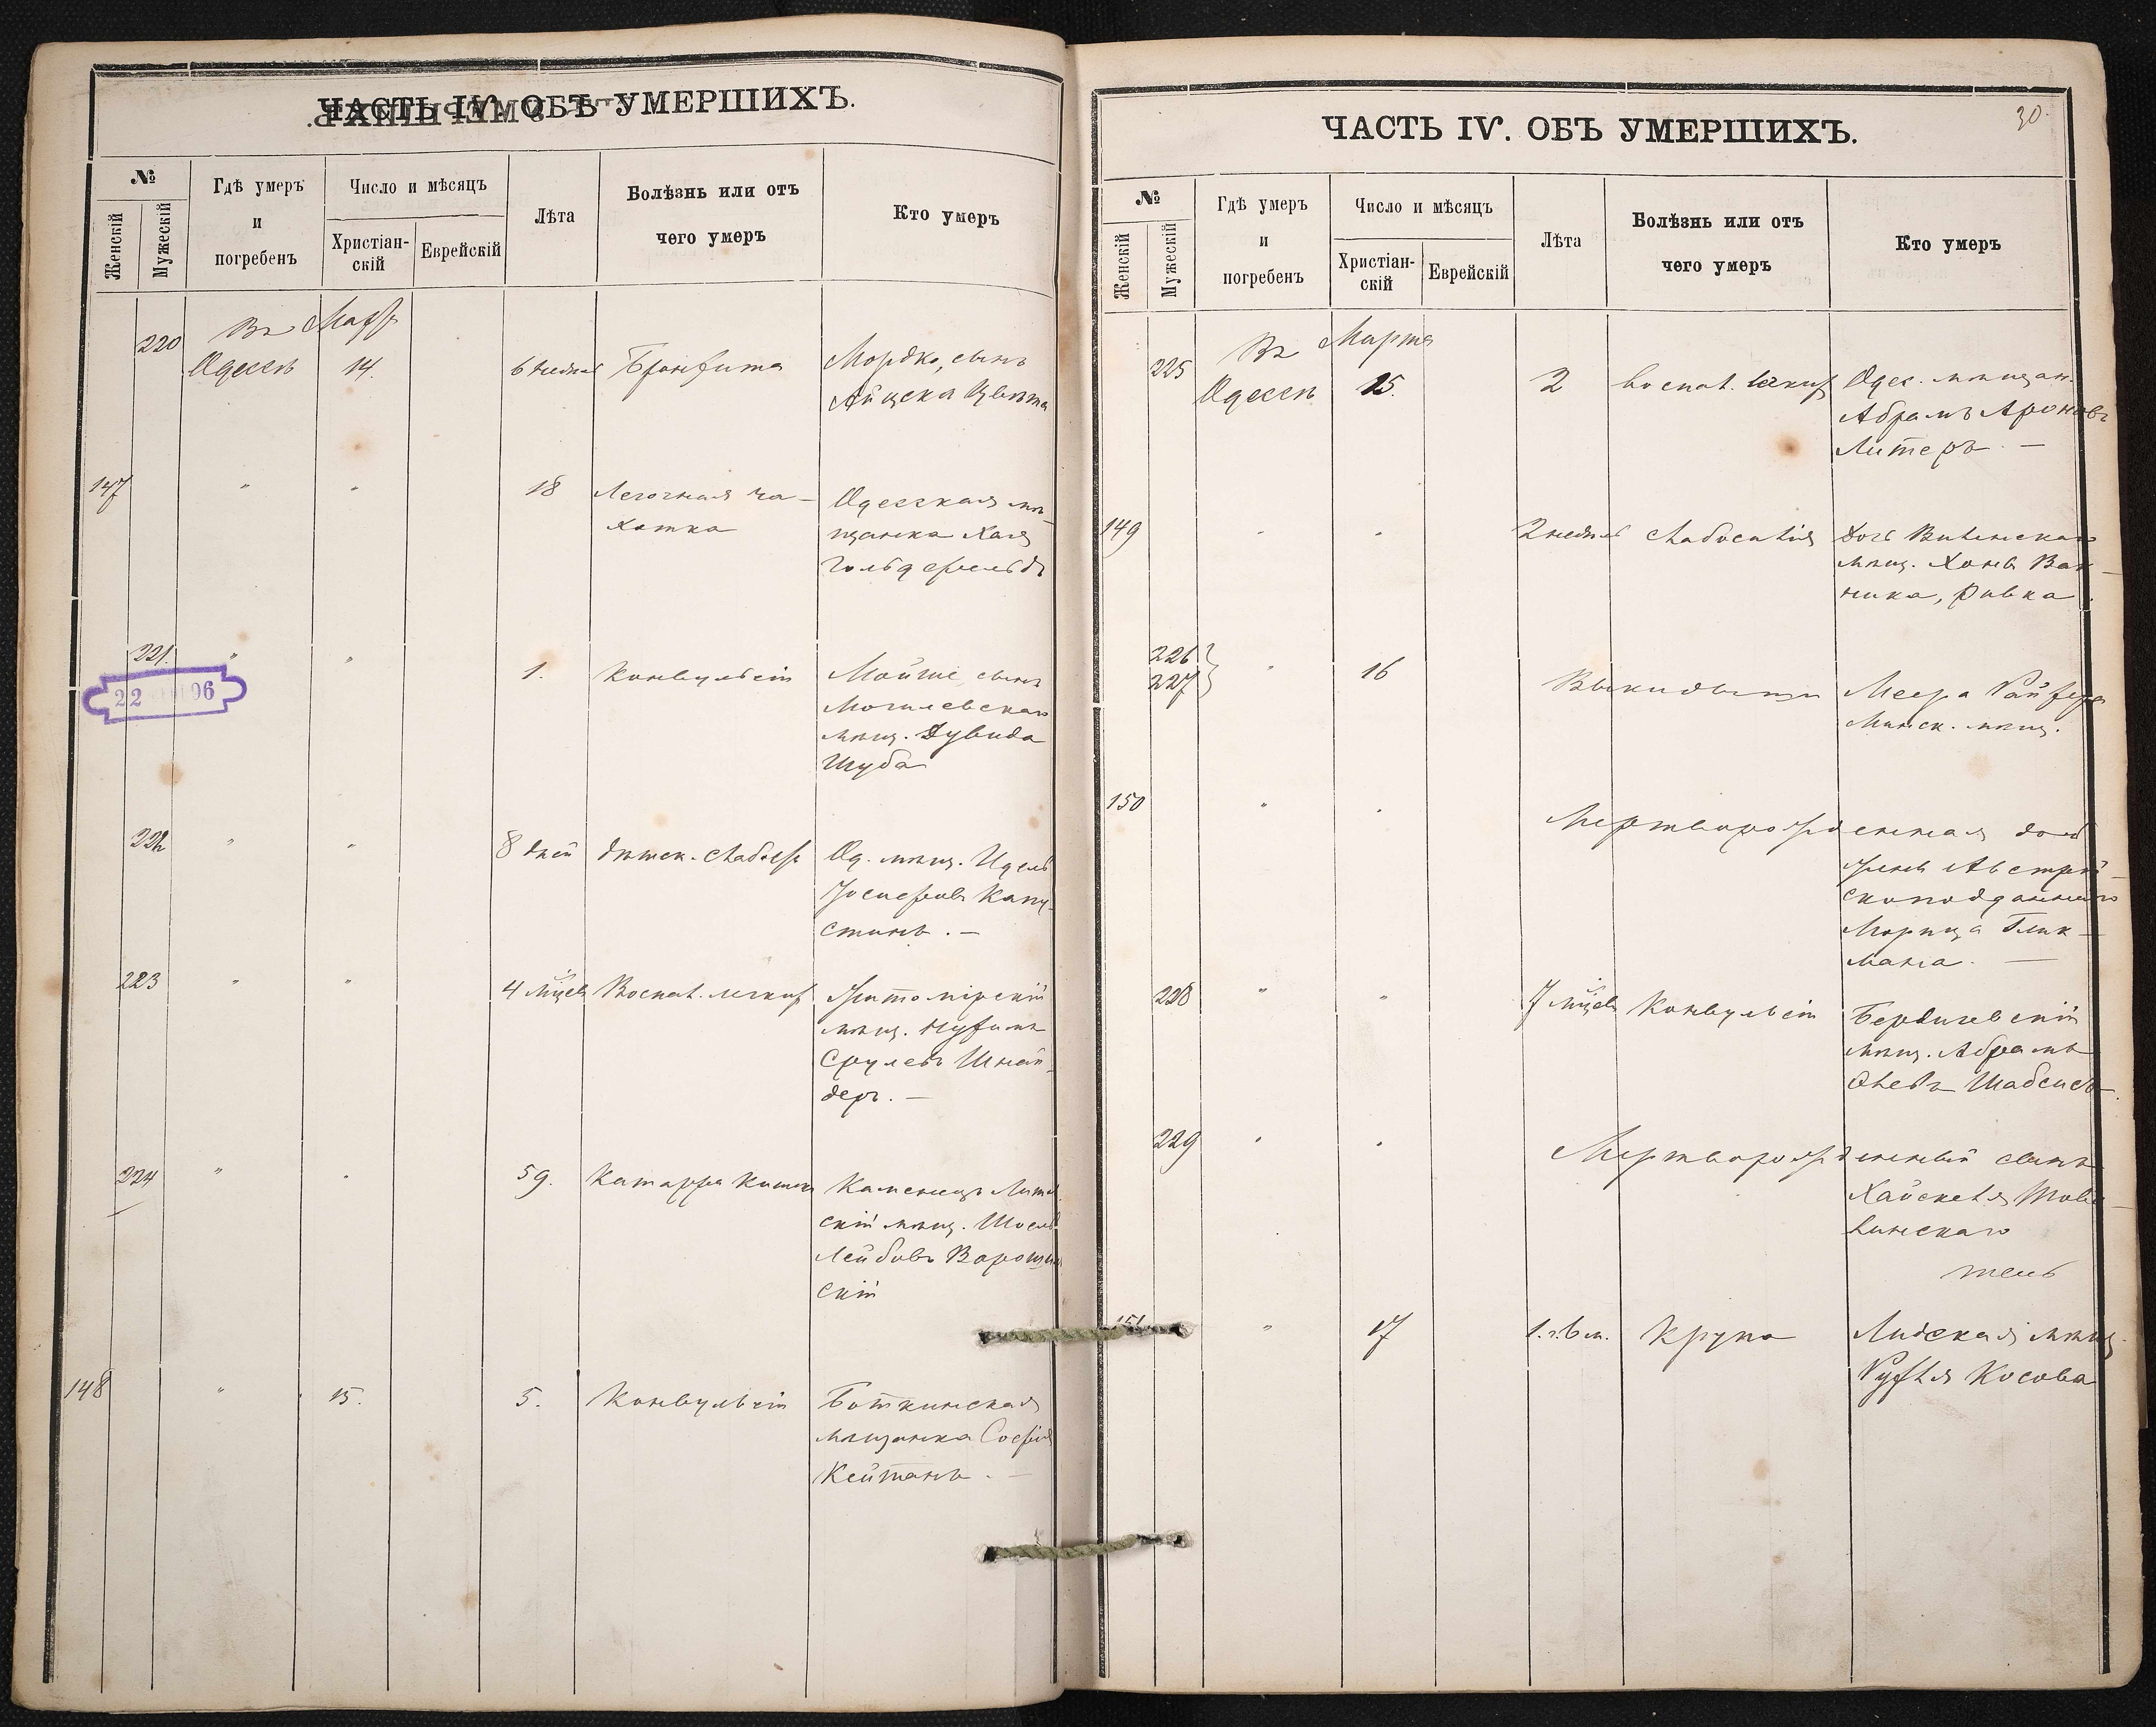 ЧАСТЬ IV. ОБЪ УМЕРШИХЪ.
№
Женскій
Мужескій
Гдѣ умеръ
и
погребенъ
Число и мѣсяцъ
Христіан-
скій
Еврейскій
Лѣта
Болѣзнь или отъ
чего умеръ
Кто умеръ
220
Въ
Одессѣ
14.
Мордко, сынъ
147
"
"
18
Легочная ча-
хотка
Одесская мѣ-
щанка Хая
Гольдфельдъ
221.
"
"
1.
Конвульсіи
Мойше, сынъ
Могилевскаго
мѣщ. Дувида
Шуба
22 96
222
"
"
8 дней
дѣтск.
Од. мѣщ. Идель
Іосифовъ Капу-
стинъ. —
223
"
"
4 мѣсц
Воспал. легких
Житомірскій
мѣщ. Нухимъ
Срулевъ Шнай-
деръ. —
224
"
"
59.
Катарра кишек
Каменецъ Литов
скій мѣщ.
Лейбовъ
скій
148
"
15.
5.
Конвульсіи
мѣщанка Софія
Кейтанъ. —
30.
ЧАСТЬ IV. ОБЪ УМЕРШИХЪ.
№
Женскій
Мужескій
Гдѣ умеръ
и
погребенъ
Число и мѣсяцъ
Христіан-
скій
Еврейскій
Лѣта
Болѣзнь или отъ
чего умеръ
Кто умеръ
225
Въ Марта
Одессѣ
15.
2
воспал. легких
Одес. мѣщан.
Абрамъ Ароновъ
Литеръ. —
149
"
"
2 недѣль
слабосилія
дочь Виленскаго
мѣщ.
ника, Ривка
226
227
"
16
Выкидыши
Меера
Минск. мѣщ.
150
"
"
Мертворожденная дочь
жены Австрій-
скоподданнаго
Морица Глик-
мана. —
228
"
"
7 мѣсц
Конвульсіи
Бердичевскій
мѣщ. Абрамъ
229
"
"
Мертворожденный сынъ
151
"
17
1. г. 6 м.
Крупа
Лидская мѣщ.
Рухля Косова